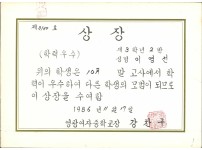 제3140 호
상 장
(학력우수)
제 3 학년 2 반
성명 이 명 선
위의 학생은 10月 말 고사에서 학
력이 우수하여 다른 학생의 모범이 되므로
이 상장을 수여함
1986 年 11 月 17 日
영광여자중학교장 강 찬 구